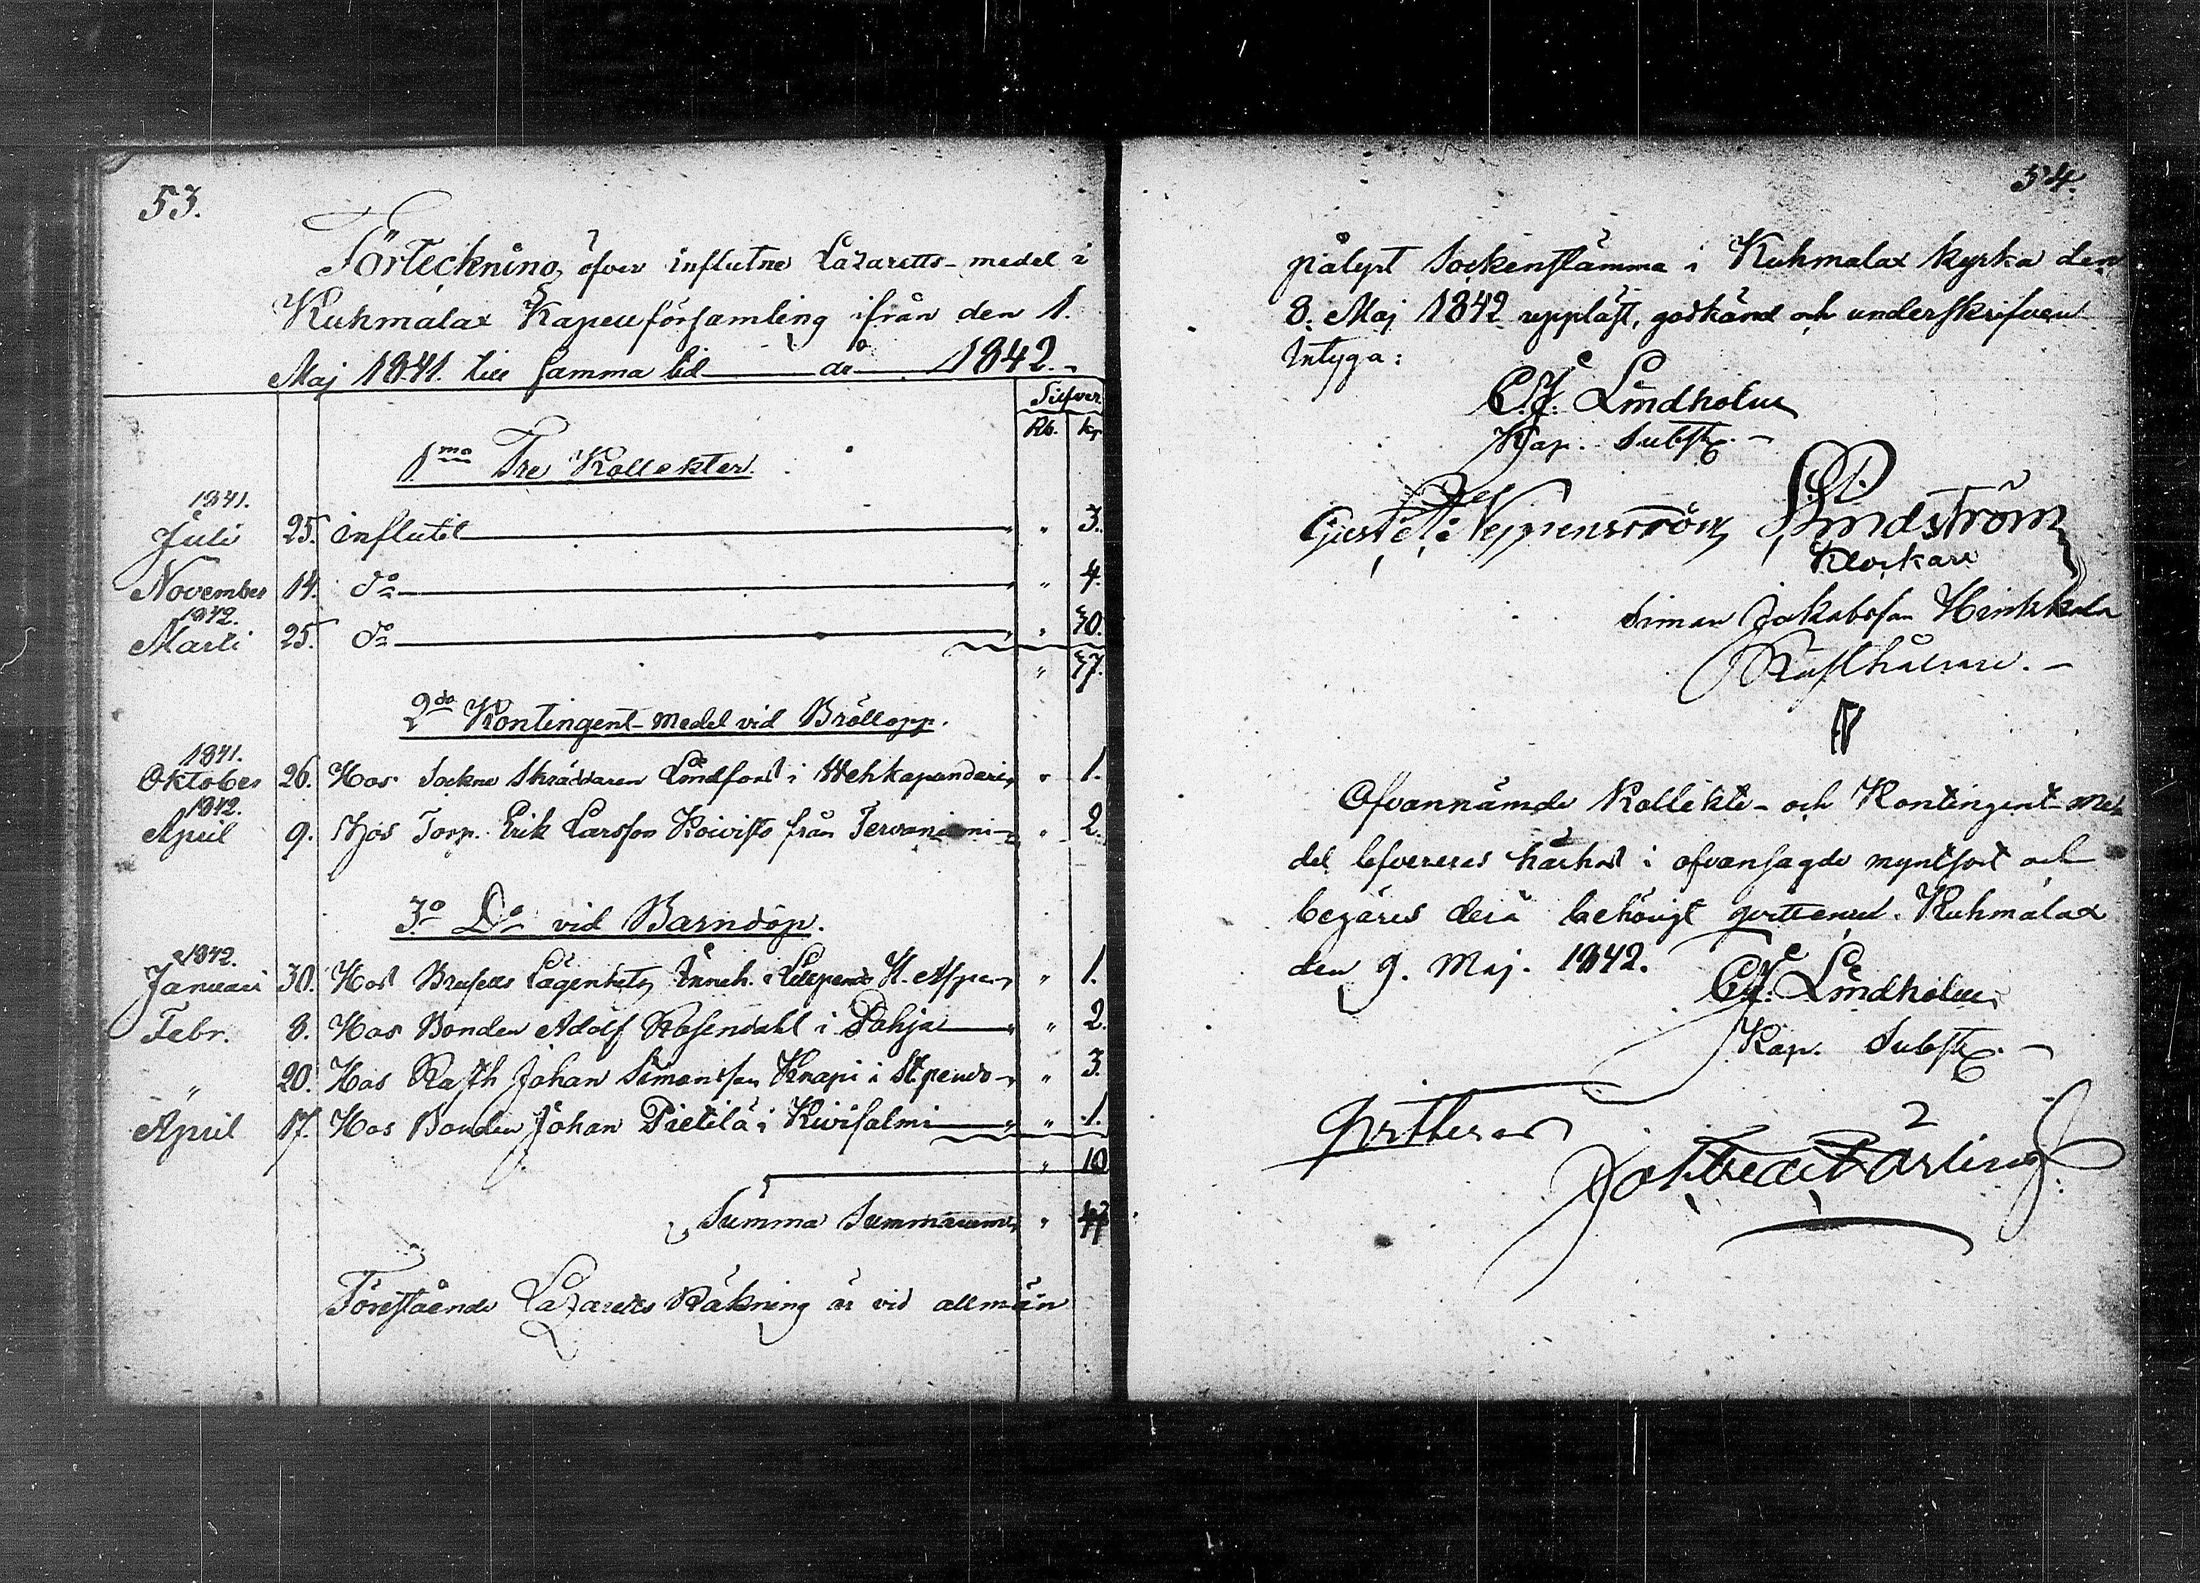 53.
Förteckning öfver influtne Lazaretts-medel i
Kuhmalax Kapellförsamling ifrån den 1.
Maj 1841. till samma tid do 1842.
Silfver.
Rb. kp
1mo Tre Kollekter.
1841.
Juli 25. influtit " 3.
November 14. do " 4.
1842.
Marti 25. do " 30.
" 37.
2do Kontingent-medel vid Bröllopp.
1841.
Oktober 26. Hos Sockne Skräddaren Lindfors i " 1.
1842.
April 9. Hos Torp. Erik Larsson Koivisto från Tervaniemi " 2.
3o Do vid Barndop.
1842.
Januari 30. Hos Lägenhets Inneh. i " 1.
Febr. 8. Hos Bonden Adolf Rosendahl i Pohja " 2.
" 20. Hos Rusth Johan Simonsson Knapi i " 3.
April 17. Hos Bonden Johan Pietilä i Kivisalmi " 1.
" 10
Summa Summarum " 47
Förestående Lazaretts Räkning är vid allmän
54.
pålyst Sockenstämma i Kuhmalax kyrka den
8. Maj 1842 uppläst, godkänd och underskrifven
Intyga:
C.J. Lindholm
Kap. Subst.
Gust. Lindström
Klockare
Simon Jakobsson Heikkola
Rusthållare.
Ofvannämde Kollekt- och Kontingent-me
del lefvereres härhos i ofvansagde myntsort och
begäres derå behörigt qvittence. Kuhmalax
den 9. Maj. 1842.
C.J. Lindholm
Kap. Subst.
Qvitteras